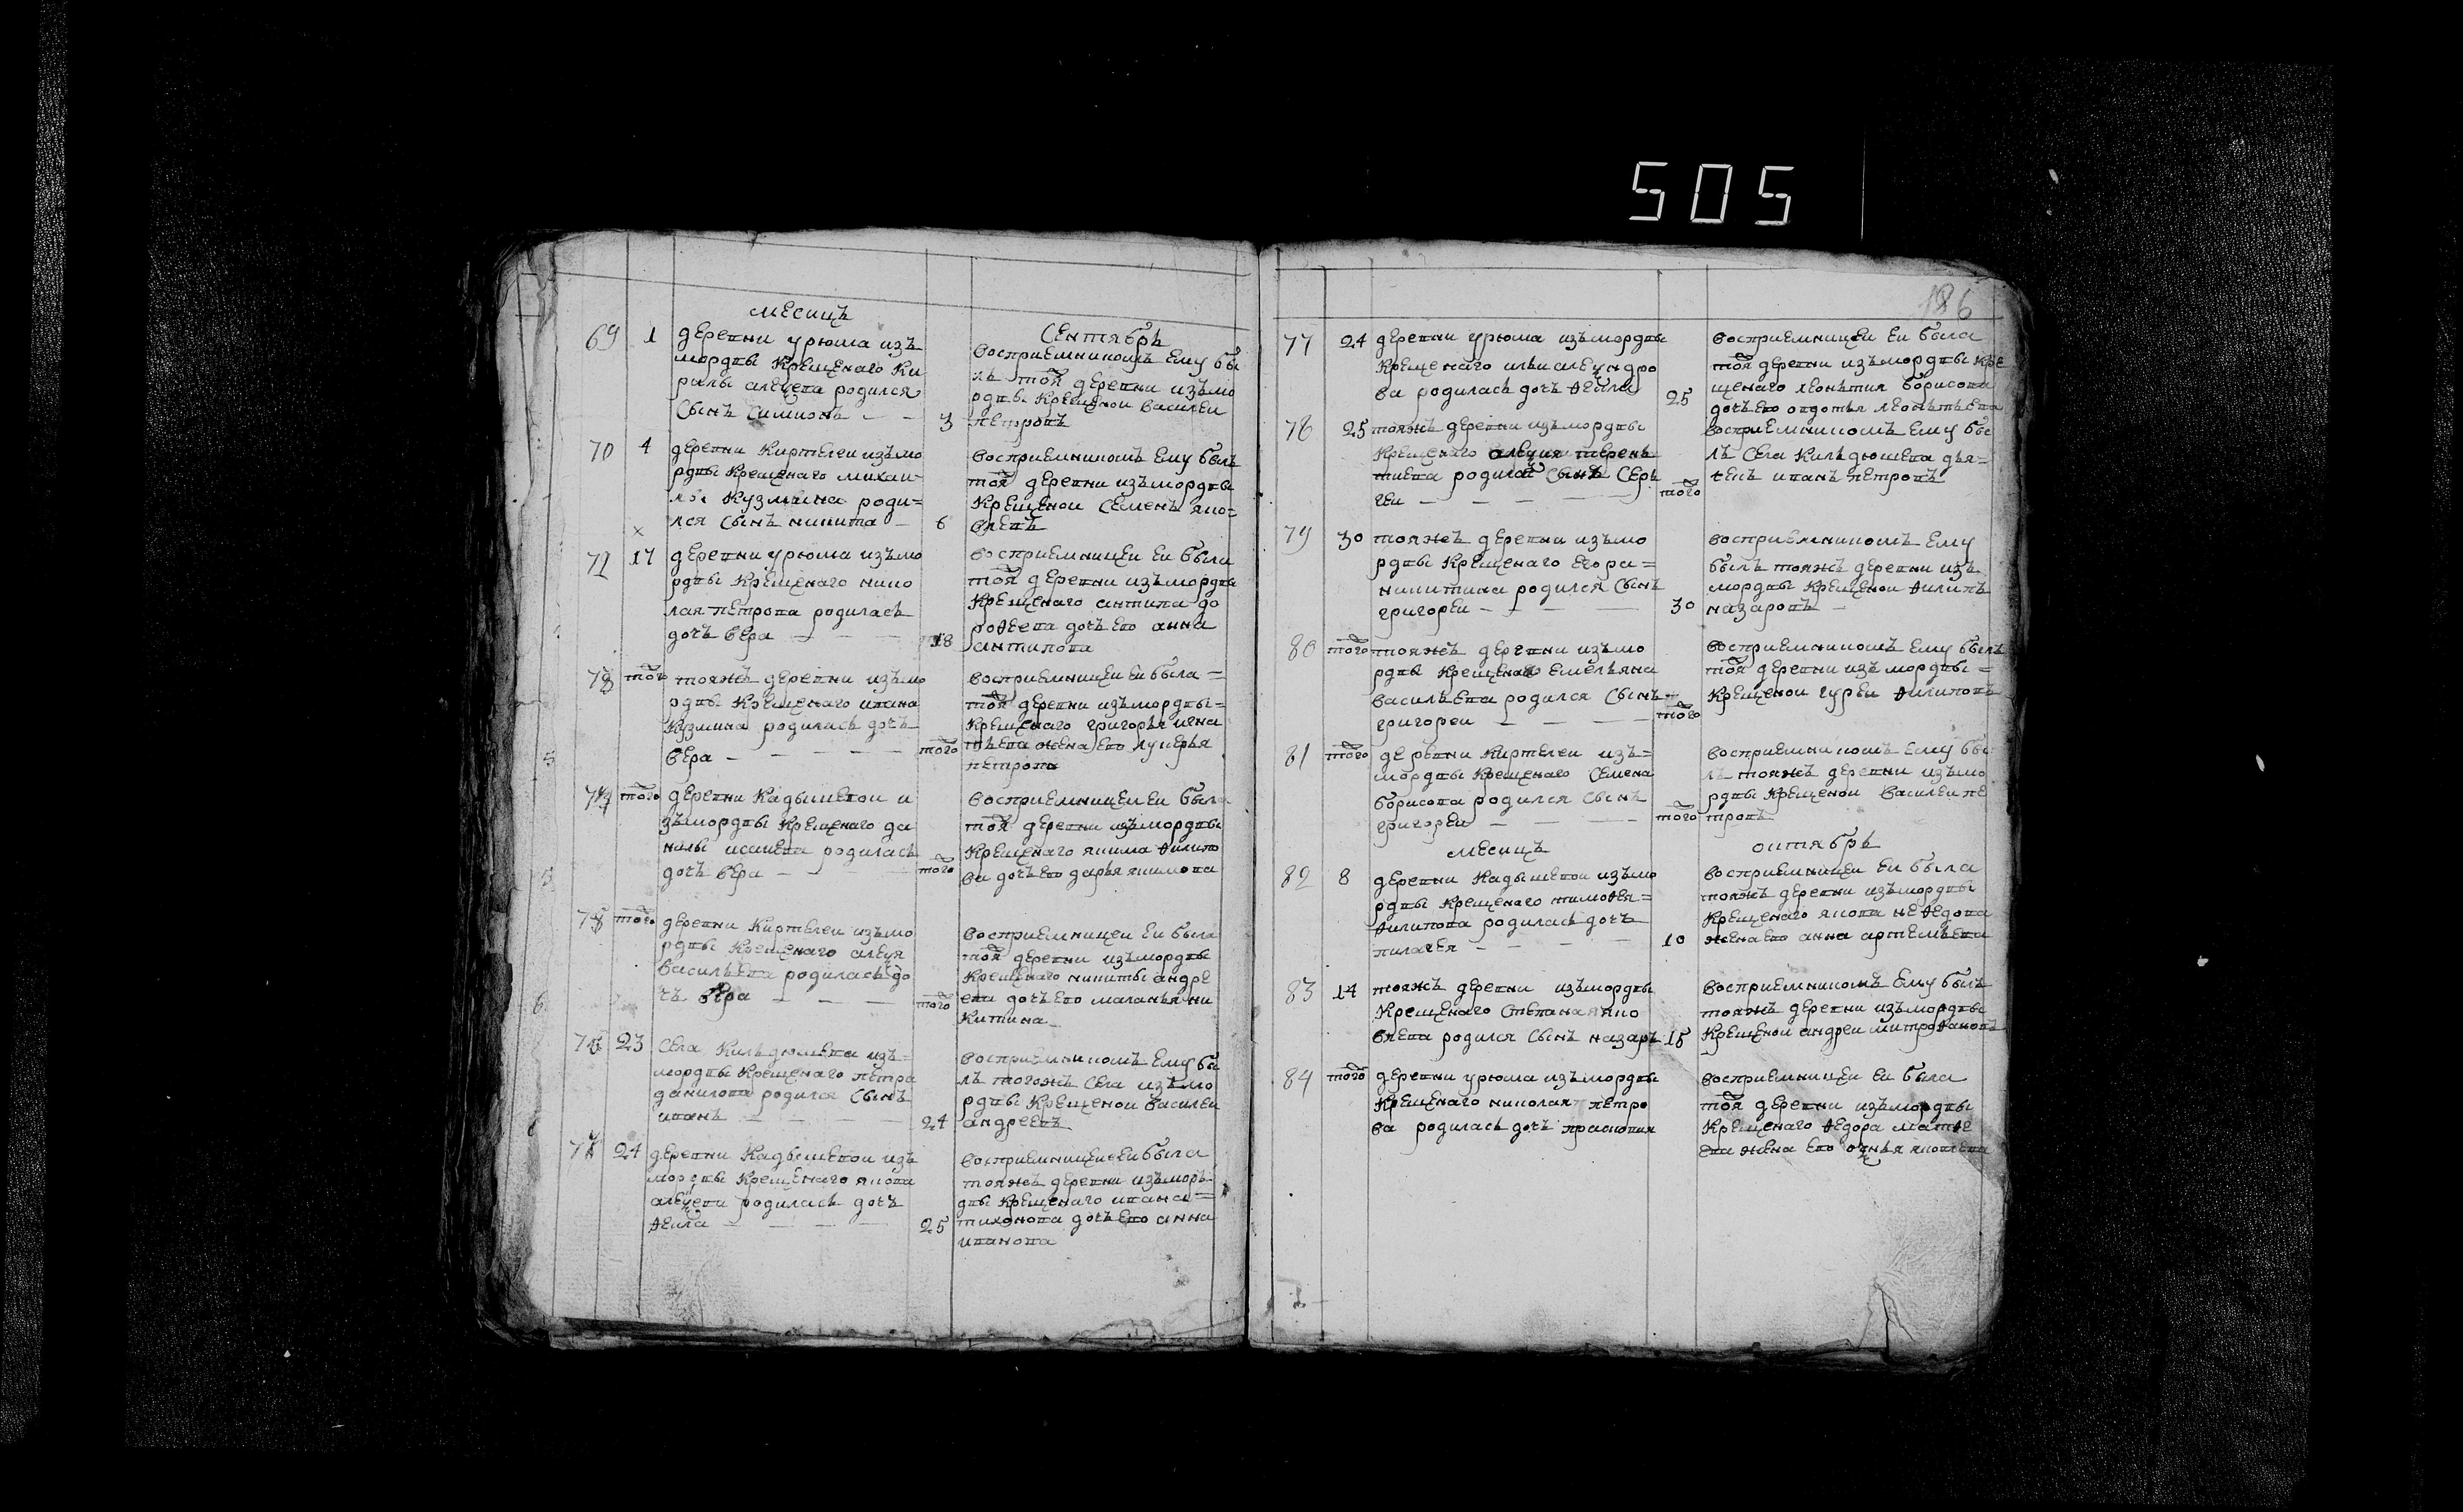 505
186
месицъ
69 1 деревни урюма изъ
мордвы крещенаго ки
рилы алеѯева родился
сынъ симионъ
3
сентябрь
восприемникомъ ему бы
лъ тоя деревни изъ мо
рдвы крещеной василеи
петровъ
70 4 деревни киртелеи изъ мо
рдвы крещенаго михаи
лы кузмина роди=
лся сынъ никита
6
восприемникомъ ему былъ
тоя деревни изъ мордвы
крещеной семенъ яко=
влевъ
17 деревни урюма изъ мо
рдвы крещенаго нико
лая петрова родилась
дочь вера
18
восприемницеи еи была
тоя деревни изъ мордвы
крещенаго антипа до
роѳеева дочь ево анна
антипова
того тояжъ деревни изъ мо
рдвы крещенаго ивана
кузмина родилась дочь
вера
того
восприемницеи еи была =
тоя деревни изъ мордвы=
крещенаго григорья игна
тьева жена ево лукерья
петрова
того деревни кадышевои и
зъ мордвы крещенаго да
нилы исаиева родилась
дочь вера
того
восприемницеи еи была
тоя деревни изъ мордвы
крещенаго якима ѳилипо
ва дочь ево дарья якимова
того деревни киртелеи изъ мо
рдвы крещенаго алеѯя
васильева родилась до
чь вера
того
восприемницеи еи была
тоя деревни изъ мордвы
крещенаго никиты андре
ева дочь ево маланья ни
китина
23 села кильдюшева изъ=
мордвы крещенаго петра
данилова родился сынъ
иванъ
24
восприемникомъ ему бы
лъ тогожъ села изъ мо
рдвы крещеной василеи
андреевъ
24 деревни кадышевои изъ
мордвы крещенаго якова
алеѯеева родилась дочь
ѳекла
25
восприемницеи еи была
тояжъ деревни изъ морь
двы крещенаго ивана=
тихонова дочь ево анна
иванова
77 24 деревни урюма изъ мордвы
крещенаго ильи алеѯандро
ва родилась дочь ѳекла
25
восприемницеи еи была
тоя деревни изъ мордвы кре
щенаго леонтия борисова
дочь ево овдотья леонтьева
78 25 тояжъ деревни изъ мордвы
крещенаго алеѯия терень
тиева родился сынъ серь
геи
того
восприемникомъ ему бы
лъ села кильдюшева дья=
чекъ иванъ петровъ
79 30 тояжъ деревни изъ мо
рдвы крещенаго егора=
никитина родился сынъ
григореи
30
восприемникомъ ему
былъ тояжъ деревни изъ
мордвы крещеной ѳилипъ
назаровъ
80 того тояжъ деревни изъ мо
рдвы крещенаго емельяна
васильева родился сынъ
григореи
того
восприемникомъ ему былъ
тоя деревни изъ мордвы=
крещеной гуреи ѳилиповъ
81 того деревни киртелеи изъ=
мордвы крещенаго семена
борисова родился сынъ
григореи
того
восприемникомъ ему бы
лъ тояжъ деревни изъ мо
рдвы крещеной василеи пе
тровъ
месицъ
октябрь
82 8 деревни кадышевои изъ мо
рдвы крещенаго тимоѳея=
ѳилипова родилась дочь
пилагея
10
восприемницеи еи была
тояжъ деревни изъ мордвы
крещенаго якова неѳедова
жена ево анна артемьева
83 14 тояжъ деревни изъ мордвы
крещенаго степана яко
влева родился сынъ назаръ
15
восприемникомъ ему былъ
тояжъ деревни изъ мордвы
крещеной андреи митроѳановъ
84 того деревни урюма изъ мордвы
крещенаго николая петро
ва родилась дочь прасковия
восприемницеи еи была
тоя деревни изъ мордвы
крещенаго ѳедора матѳе
ева жена ево яковлева